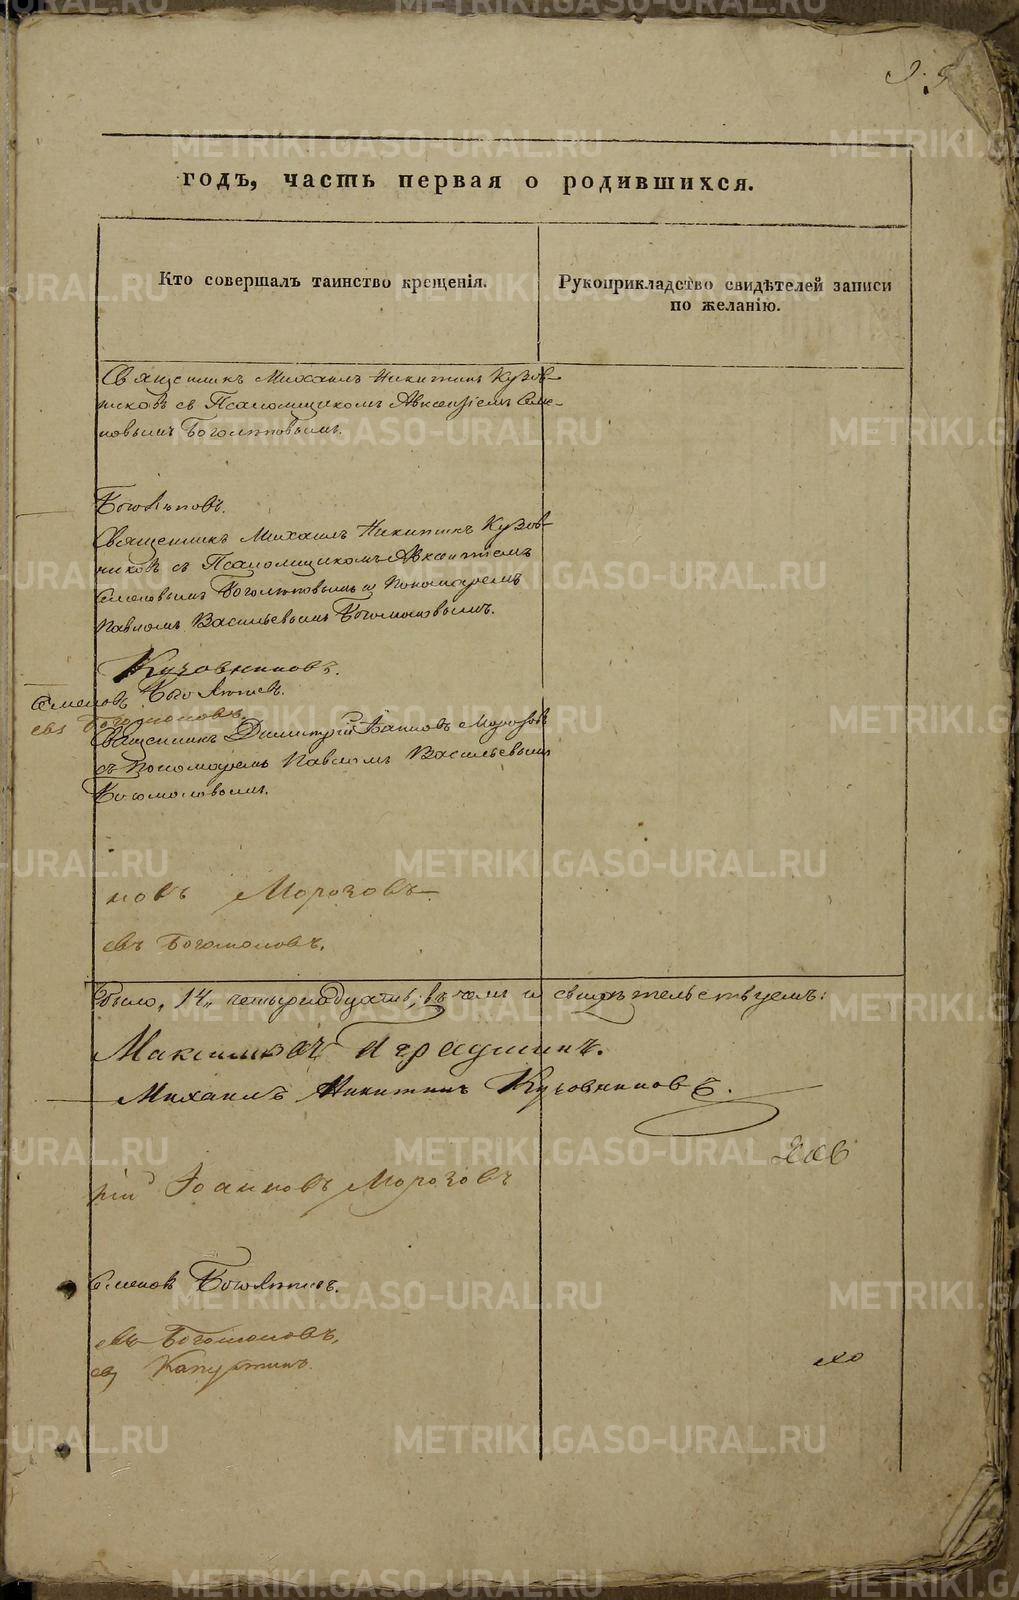 годъ, часть первая о родившихся.
Кто совершалъ таинство крещенія.
Рукоприкладство свидѣтелей записи
по желанію.
Священникъ Михаилъ Никитинъ Кузов-
никовъ съ Псаломщикомъ Авксентіемъ Семе-
новымъ Боголѣповымъ.
Боголѣповъ.
Священникъ Михаилъ Никитинъ Кузов-
никовъ съ Псаломщикомъ Авксентіемъ
Семеновымъ Боголѣповымъ и Пономаремъ
Павломъ Васильевымъ Богомоловымъ.
Кузовниковъ.
Семеновъ Боголѣповъ.
евъ Богомоловъ.
Священникъ Димитрій Іоанновъ Морозовъ
съ Пономаремъ Павломъ Васильевымъ
Богомоловымъ.
новъ Морозовъ
евъ Богомоловъ.
было, 14, четырнадцать, въ чемъ и свидѣтельствуемъ:
Михаилъ Никитинъ Кузовниковъ.
рій Іоанновъ Морозовъ
Семеновъ Боголѣповъ.
евъ Богомоловъ,
Капустинъ.
METRIKI.GASO-URAL.RU